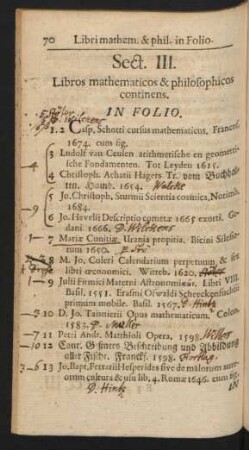 70 Libri mathem. & phil. in Folio.
Sect. III.
Libros mathematicos & philosophicos
continens.
IN FOLIO.
1. 2 Casp. Schotti cursus mathematicus. Francof.
1674. cum fig.
3 Ludolf van Ceulen arithmetische en geometri-
sche Fondamenten. Tot Leyden 1615.
4 Christoph. Achatii Hagers Tr. vom Buchhal-
ten. Hamb. 1654. Waloke
5 Jo. Christoph. Sturmii Scientia cosmica, Norimb.
1684.
6 Jo. Hevelii Descriptio cometæ 1665 exorti. Ge-
dani 1666. D. Wilckens
7 Mariæ Cunitiæ Urania propitia. Bicini Silesio-
rum 1650.
8 M. Jo. Coleri Calendarium perpetuum, & sex
libri œconomici. Witteb. 1620.
9 Julii Firmici Materni Astronomicῶν Libri VIII.
Basil. 1551. Erasmi Oswaldi Schreckenfuchsii
primum mobile. Basil. 1567. D. Hintz
10 D. Jo. Taisnierii Opus mathematicum. Colon.
1583. D. Müller
11 Petri Andr. Matthioli Opera, 1598. Willers
12 Conr. Gesners Beschreibung und Abbildung
aller Fische. Franckf. 1598. Hertug.
13 Jo. Bapt. Ferrarii Hesperides sive de malorum aureorum
cultura & usu lib. 4. Romæ 1646. cum fig.
D. Hintz
IN